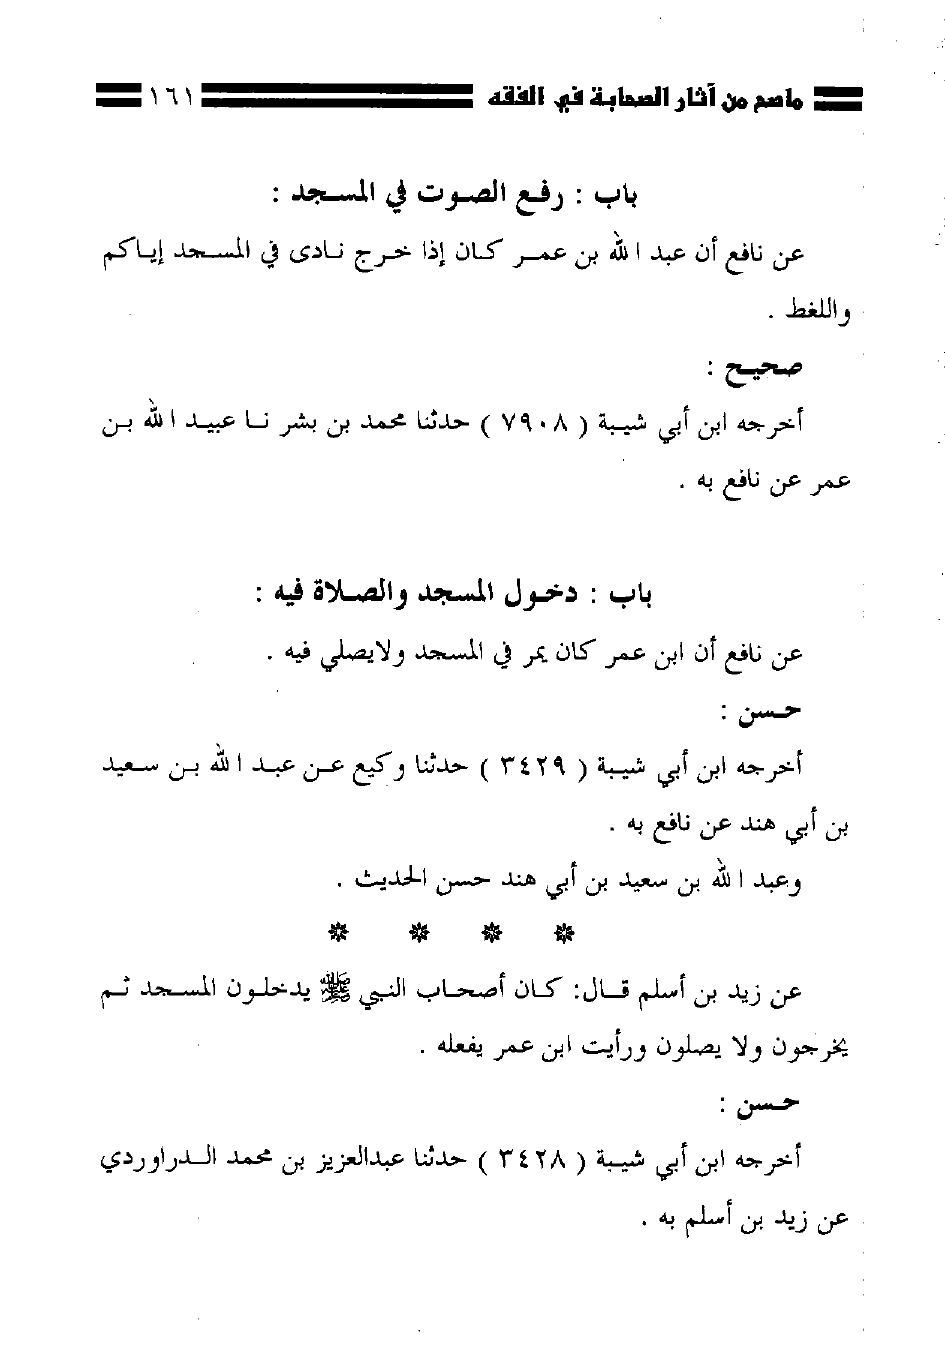 ماصح من آثار الصحابة في الفقه ١٦١
باب : رفع الصوت في المسجد :
عن نافع أن عبد الله بن عمر كان إذا خرج نادى في المسجد إياكم
واللغط .
صحيح :
أخرجه ابن أبي شيبة ( ٧٩٠٨ ) حدثنا محمد بن بشر نا عبيد الله بن
عمر عن نافع به .
باب : دخول المسجد والصلاة فيه :
عن نافع أن ابن عمر كان يمر في المسجد ولايصلي فيه .
حسن :
أخرجه ابن أبي شيبة ( ٣٤٢٩ ) حدثنا وكيع عن عبد الله بن سعيد
بن أبي هند عن نافع به .
وعبد الله بن سعيد بن أبي هند حسن الحديث .
عن زيد بن أسلم قال: كان أصحاب النبي ﷺ يدخلون المسجد ثم
يخرجون ولا يصلون ورأيت ابن عمر يفعله .
حسن :
أخرجه ابن أبي شيبة ( ٣٤٢٨ ) حدثنا عبدالعزيز بن محمد الدراوردي
عن زيد بن أسلم به .